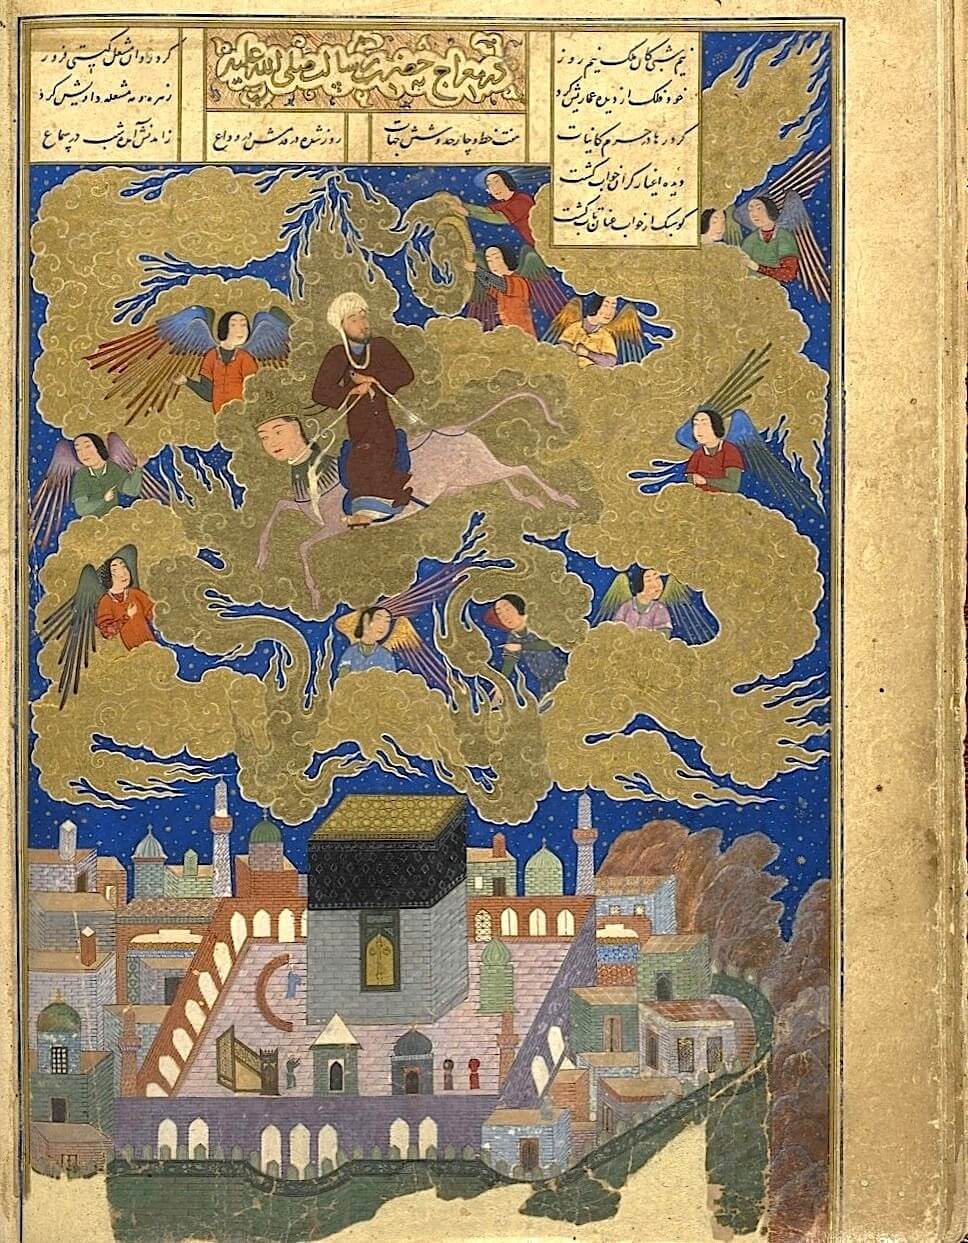 در معراج حضرت رسالت صلی الله علیه
نیم شبی کان ملک نیم روز
کرد روان مشعل گیتی فروز
خود فلک از دیده عماریش کرد
زهره و مه مشعله داریش کرد
کرد رها در حرم کاینات
هفت خط و چار حد و شش جهات
روز شده از قدمش در وداع
زامدنش آمده شب در سماع
دیده اغیار گران خواب گشت
کو سبک از خواب عنان تاب گشت